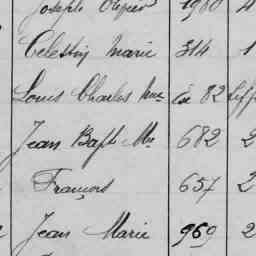 Joseph 1980 4
Celestin Marie 314 1
Louis Charles 82
Jean Bapt Mie 682 2
François 657 2
Jean Marie 969 2